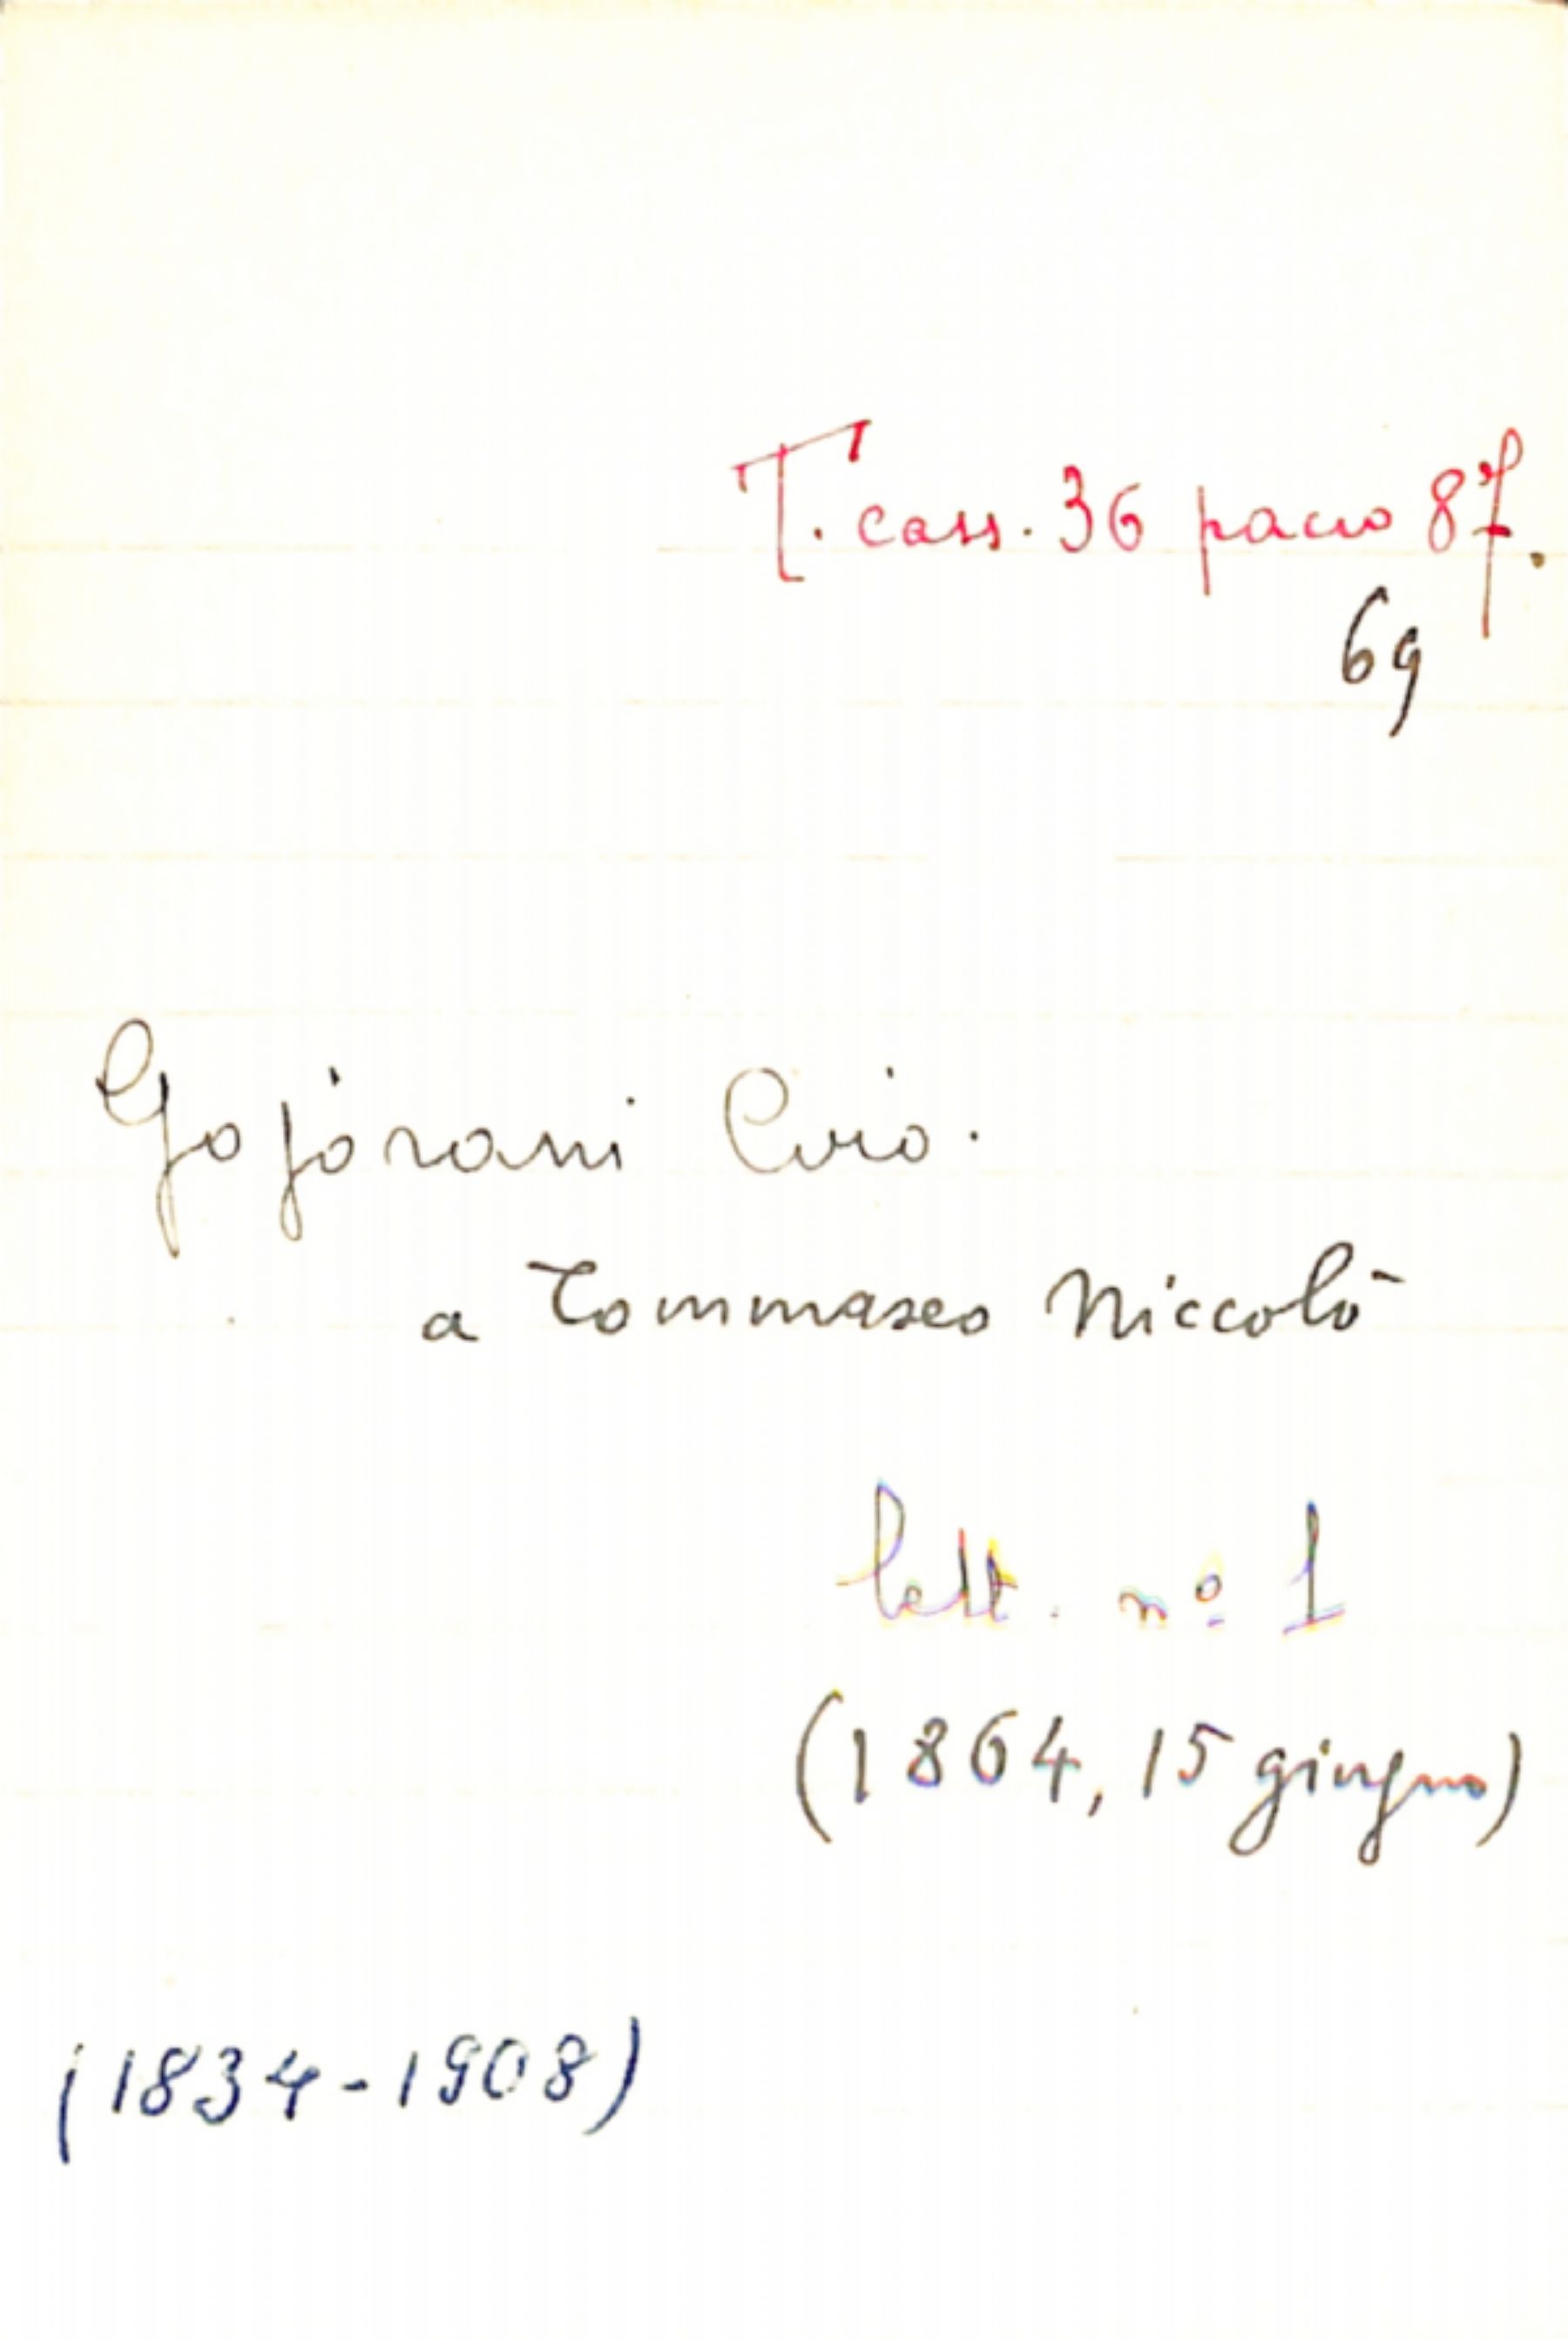 T. cass. 36 pacco 87.
69
Gojorani Ciro.
a Tommaseo Niccolò
lett. nº 1
(1864, 15 giugno)
(1834-1908)